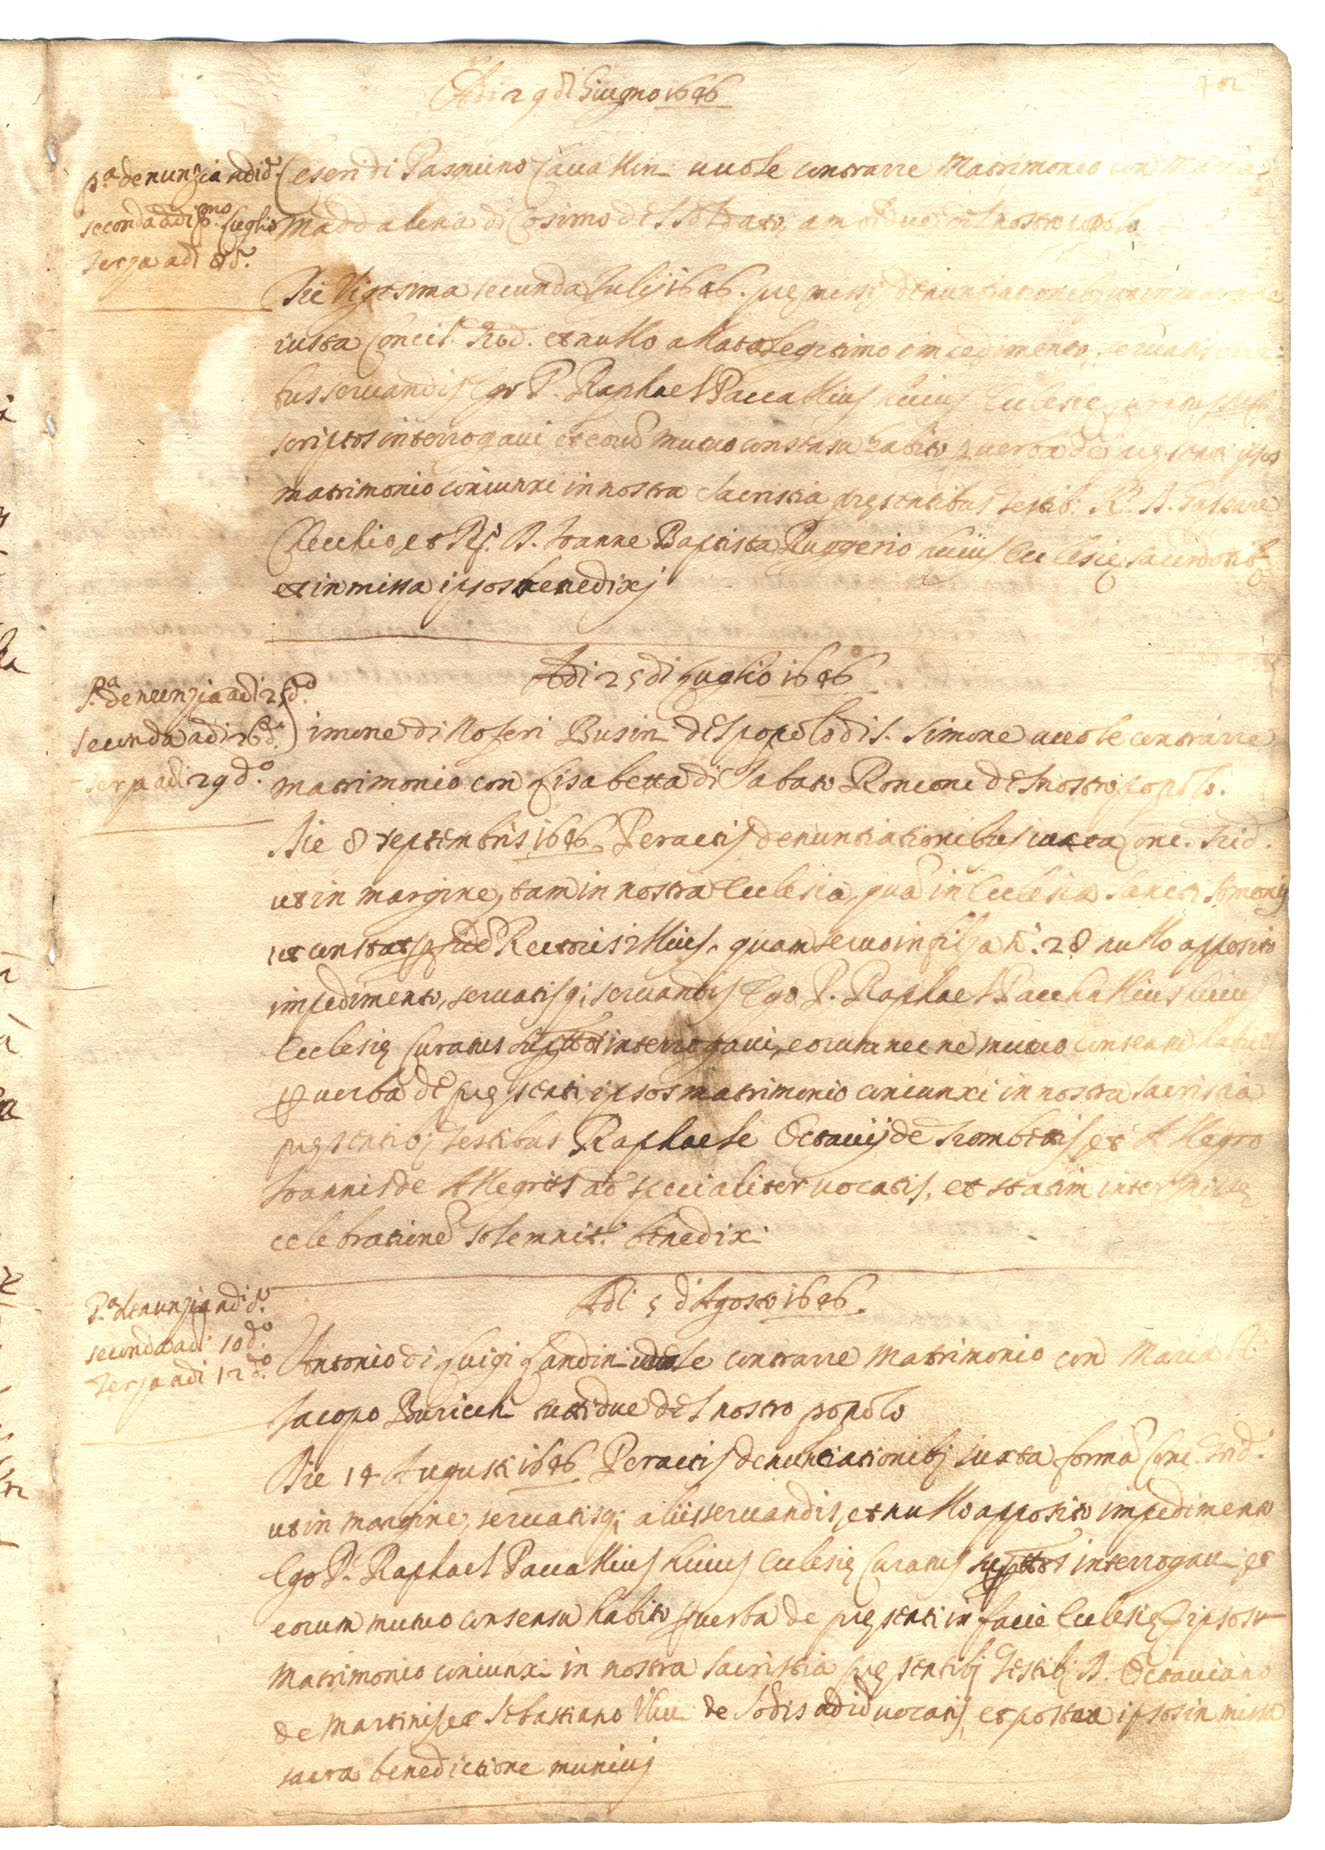 Adi 29 di Giugno 1646
p.a denunzia adi d.o
seconda adi p.mo Luglio
terza adi 8 d.o
Ceseri di Pasquino Cavallin vuole contrarre Matrimonio con Maria
Maddalena di Cosimo del Soldato, amendue del nostro popolo
Die Vigesima secunda Julij 1646. premissis denuntiationibus ut in margine
iuxta Concil. Trid. et nullo allato legitimo impedimento servatis
servandis Ego P. Raphael Paccallius huius Ecclesie
scriptos interrogavi et eorum mutuo consensu habito per verba de presenti ipsos
matrimonio coniunxi in nostra sacristia presentibus testib. R. D.
Cecchio et R. D. Joanne Baptista Ruggerio huius Ecclesie sacerdotibus
et in missa ipsos benedixi
Adi 25 di Luglio 1646
P.a denunzia adi 25 d.o
seconda adi 26 d.o
terza adi 29 d.o
Simone di Noferi Busin del popolo di S. Simone vuole contrarre
matrimonio con Lisabetta di Sabato Roncone del nostro popolo.
Die 8 septembris 1646. Peractis denuntiationibus iuxta Conc. Trid.
ut in margine, tam in nostra Ecclesia, quam in Ecclesia Sancti Simonis
ut constat per fidem Rectoris illius, quam servo in filza n. 28 nullo apposito
impedimento, servatisq; servandis Ego P. Raphael Pacchallius huius
Ecclesie Curatus supttos interrogavi, eorumque mutuo consensu habito
per verba de presenti ipsos matrimonio coniunxi in nostra sacristia
presentib; testibus Raphaele Octavij de Trombettis, et Allegro
Joannis de Allegris ad specialiter vocatis, et statim inter misse
celebrationem solemnit. benedixi
Adi 5 d'Agosto 1646.
P.a denunzia adi d.o
seconda adi 10 d.o
Terza adi 12 d.o
Antonio di Luigi Landin vuole contrarre Matrimonio con Maria di
Jacopo Buricchi tutti due del nostro popolo
Die 14 Augusti 1646 Peractis denuntiationib; iuxta formam Conc. Trid.
ut in margine, servatisq; aliis servandis, et nullo apposito impedimento
Ego P. Raphael Paccallius huius Ecclesie Curatus supttos interrogavi, et
eorum mutuo consensu habito per verba de presenti in facie Ecclesie ipsos
Matrimonio coniunxi in nostra sacristia presentib; testib; D. Octaviano
de Martinis et Sebastiano de vocatis, et postea ipsos in missa
sacra benedictione munivi